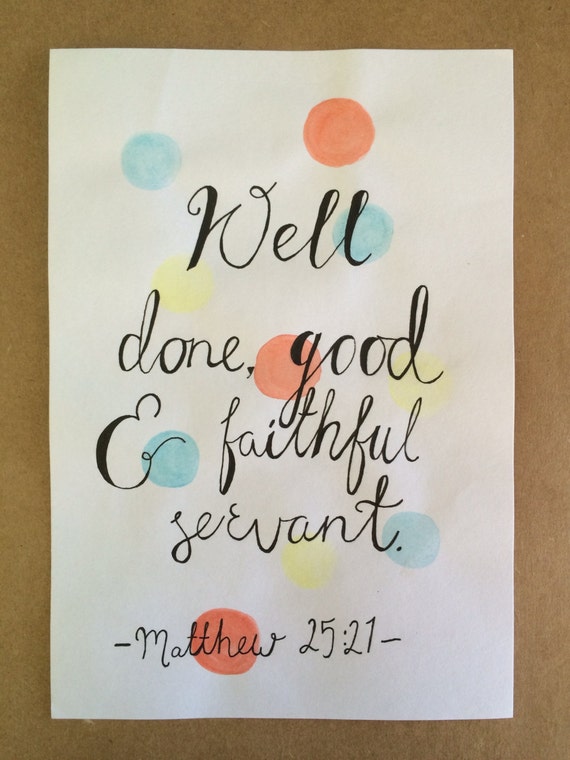 Well
done, good
& faithful
servant.
-Matthew 25:21-